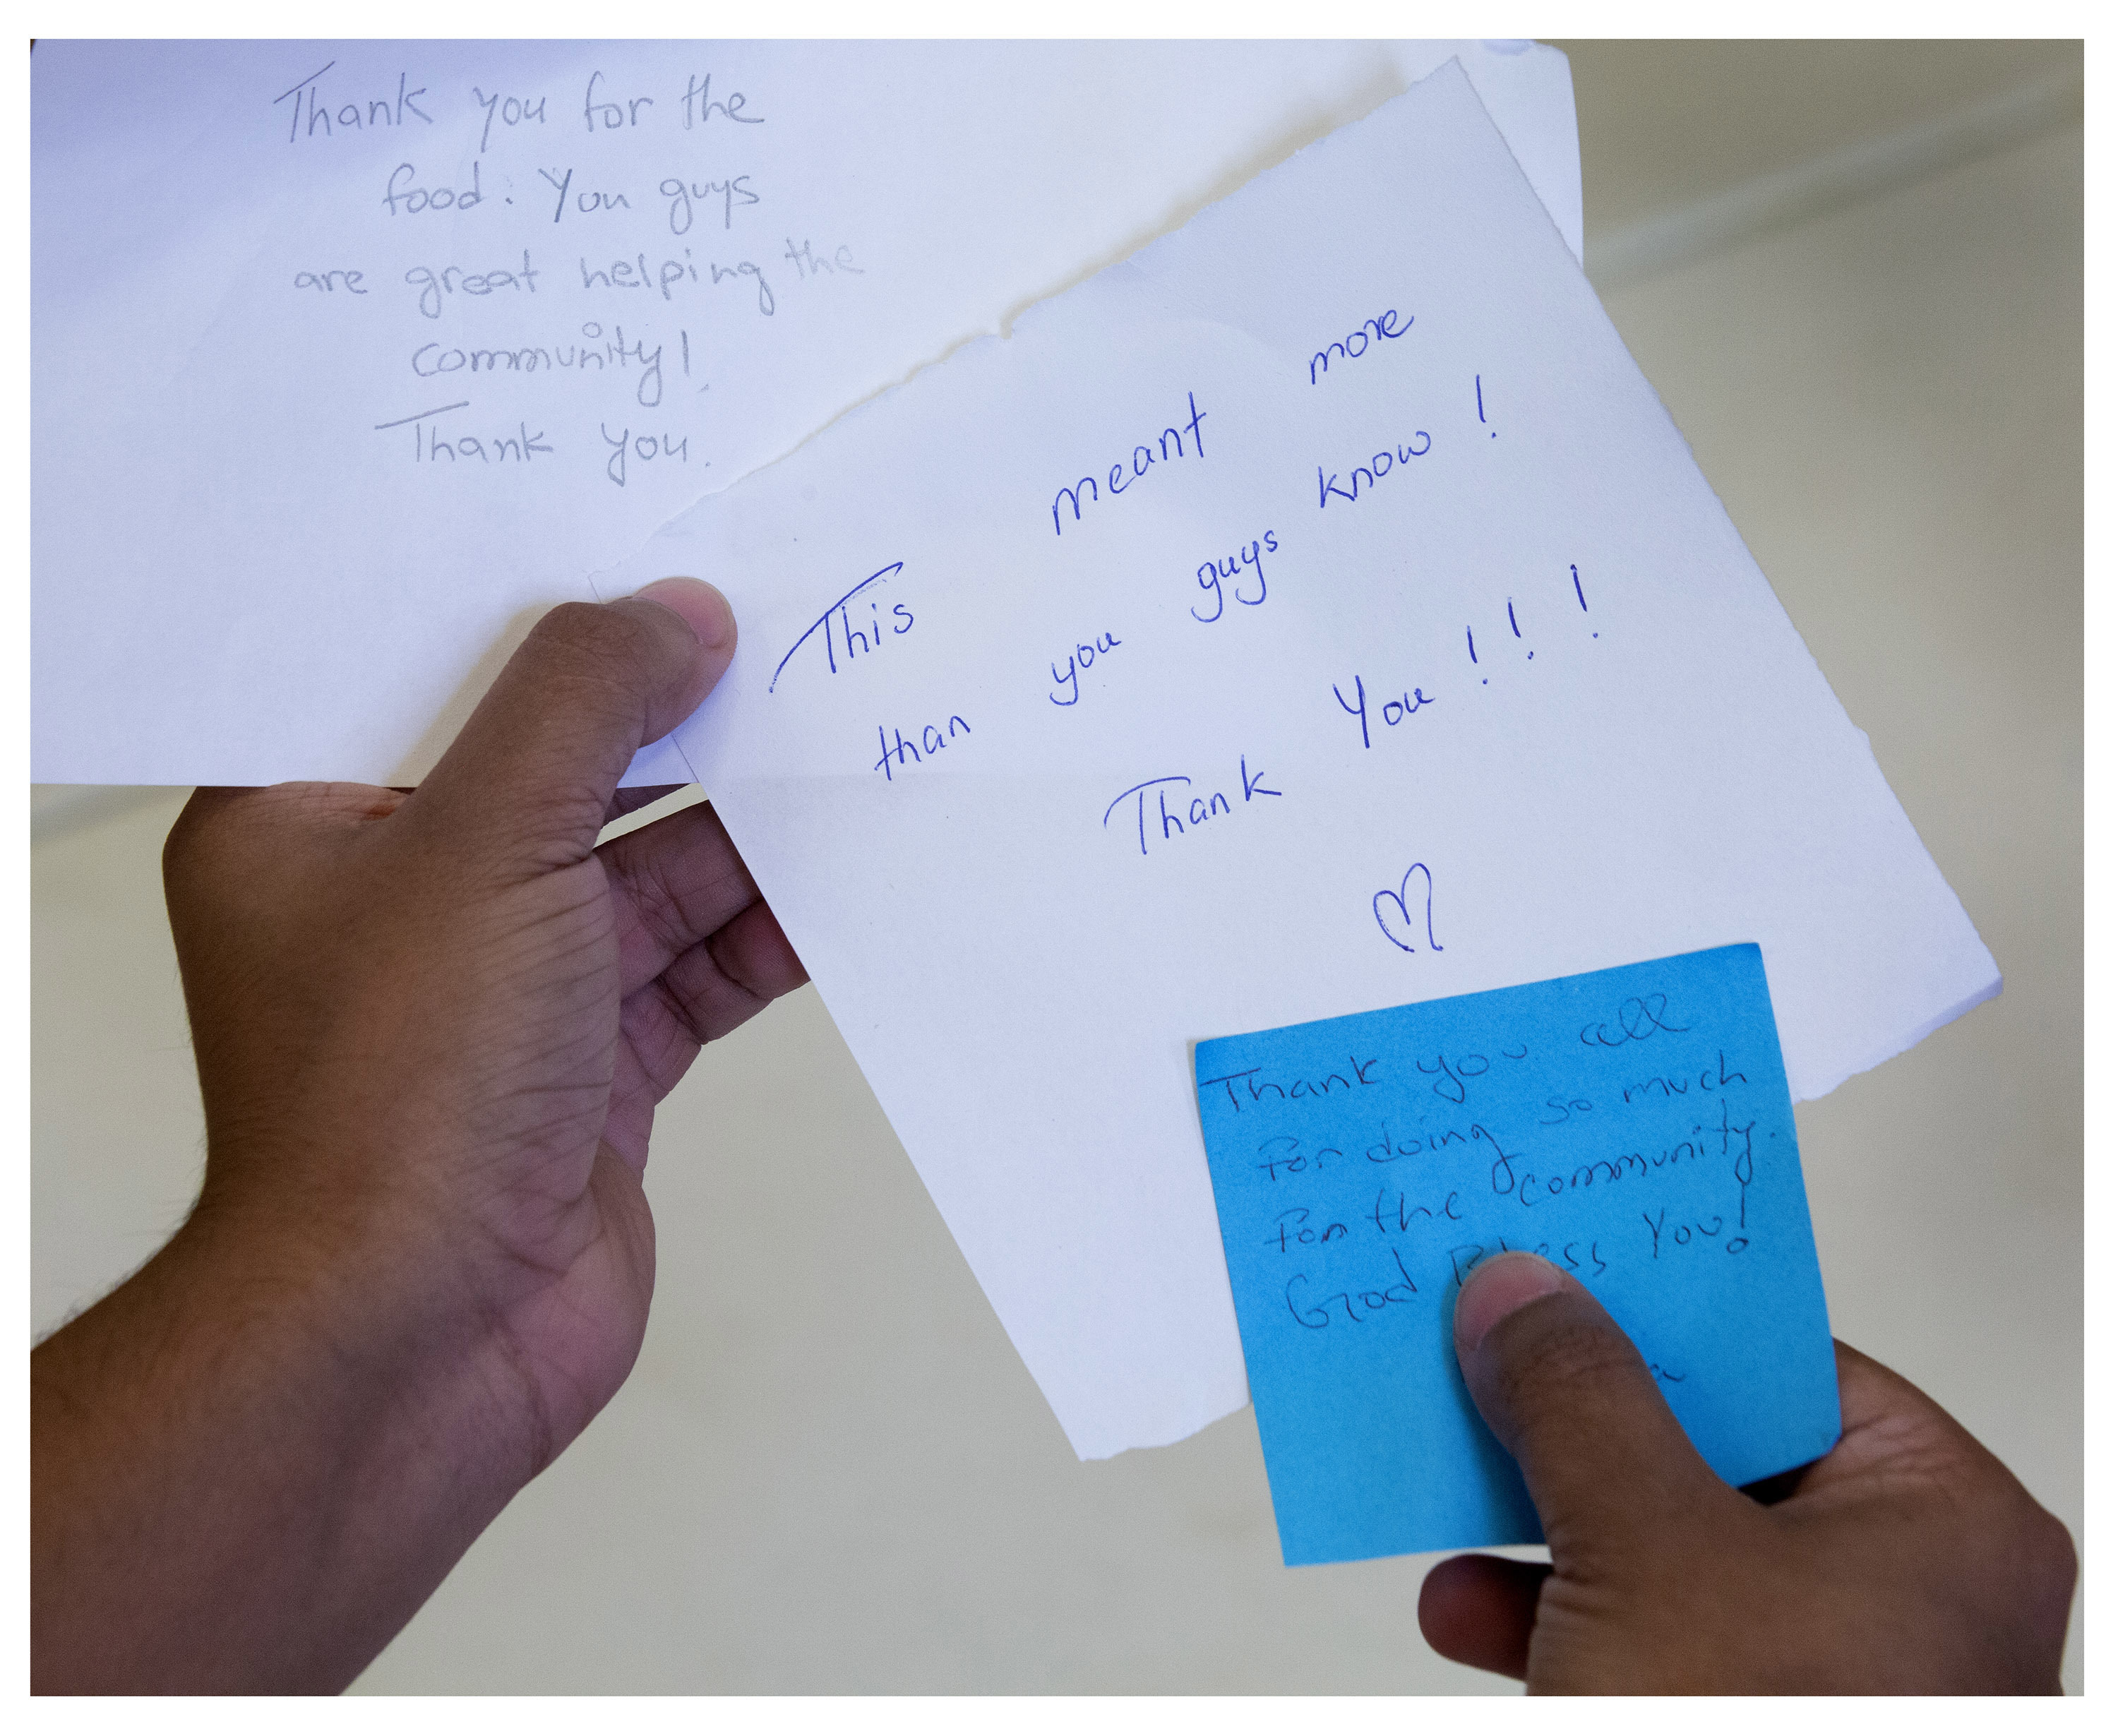 Thank you for the
food. You guys
are great helping the
community!
Thank you.
This meant more
than you guys know!
Thank You!!!
Thank you all
for doing so much
for the community.
God Bless You!